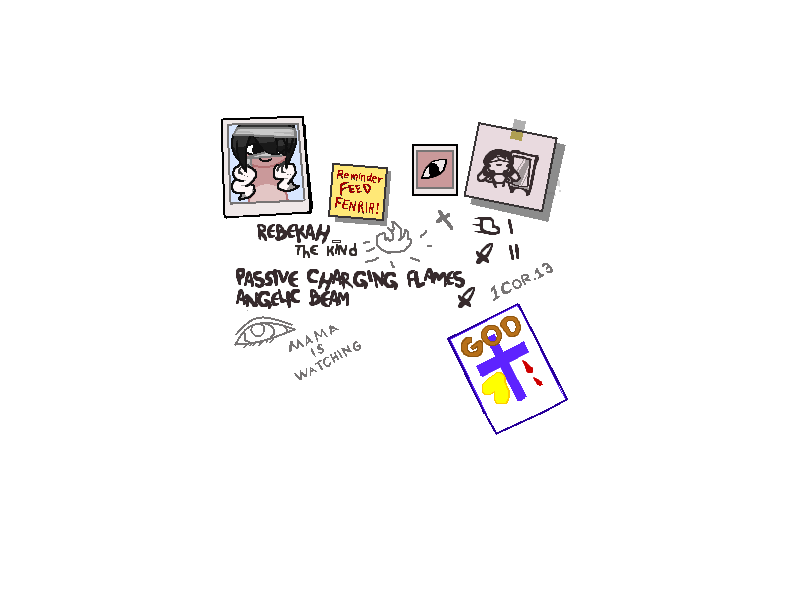 Reminder
FEED
FENRIR!
REBEKAH
THE KIND
PASSIVE CHARGING FLAMES
ANGELIC BEAM
1COR.13
MAMA
IS
WATCHING
GOD